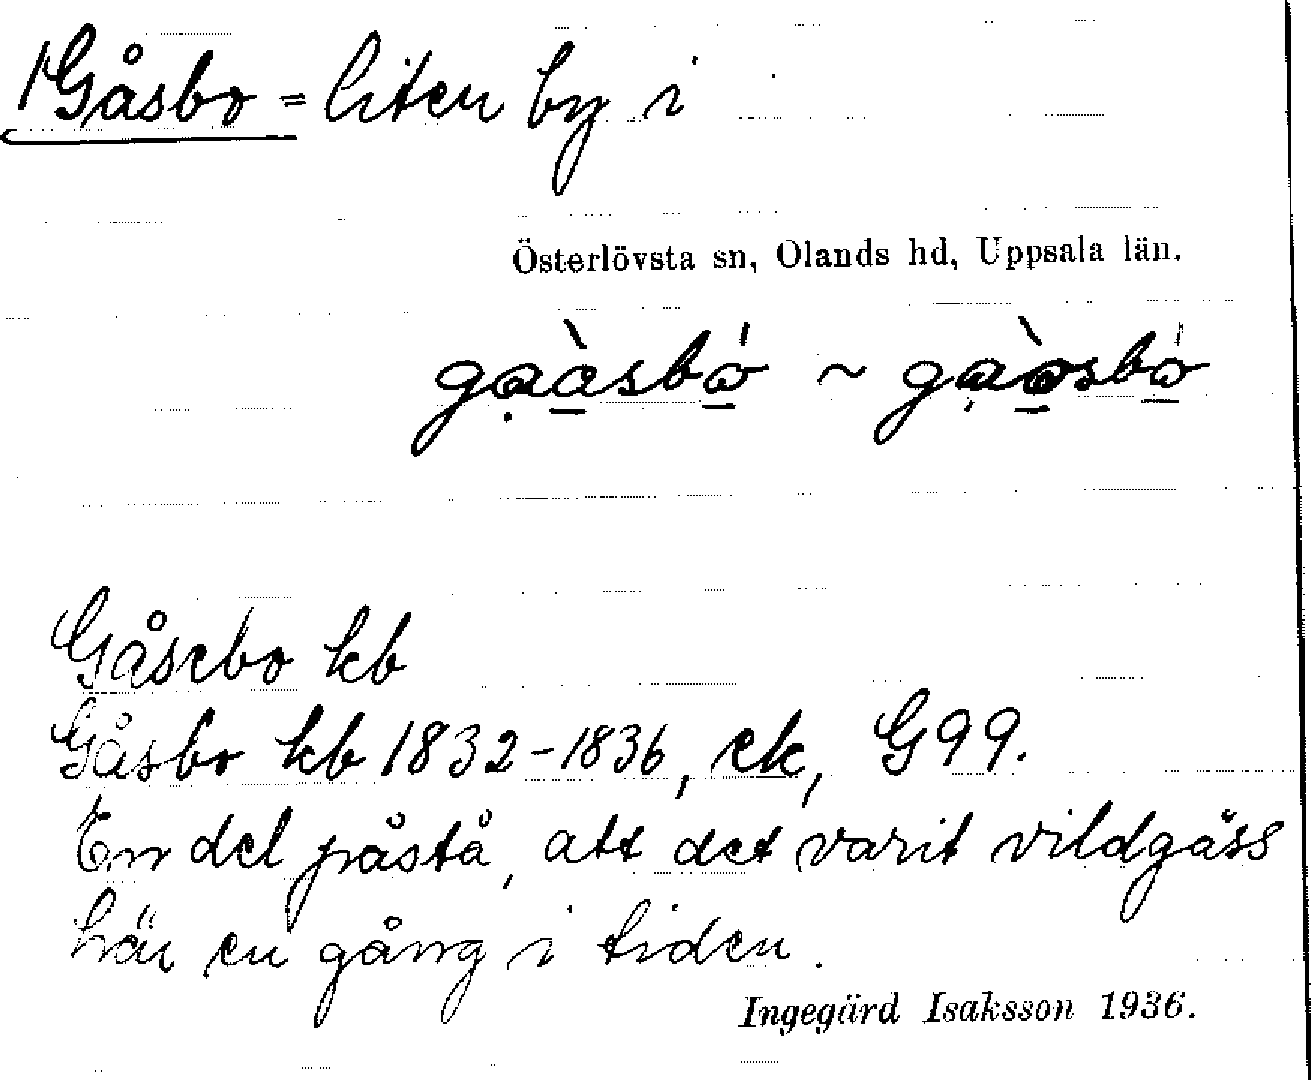 Gåsbo = liten by i
Österlövsta sn, Olands hd, Uppsala län.
Gåsebo kb
Gåsbo kb 1832-1836, ek, G99.
En del påstå, att det varit vildgåss
här en gång i tiden.
Ingegärd Isaksson 1936.